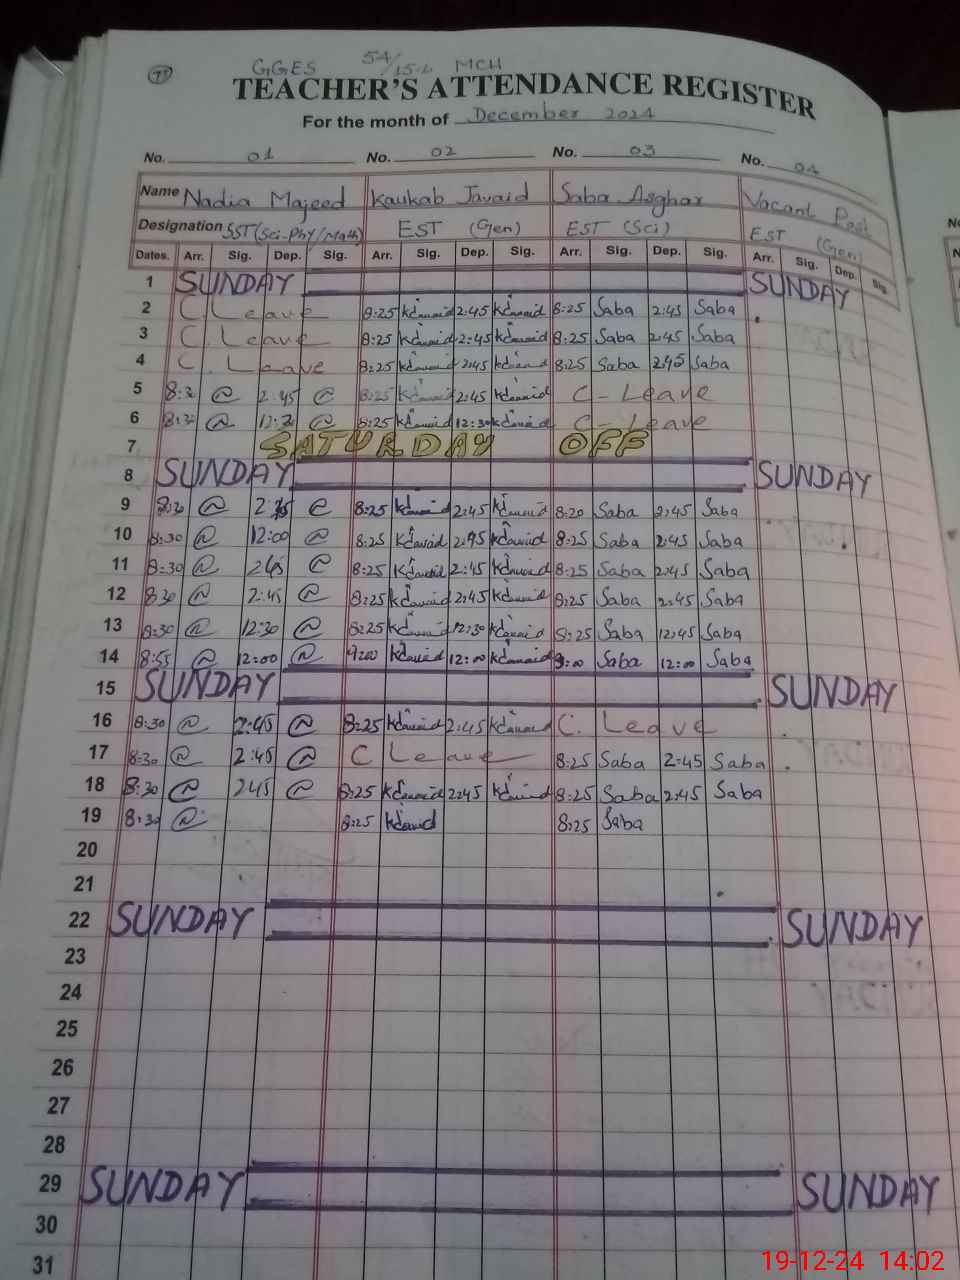 GGES 54/15-L MCH
TEACHER'S ATTENDANCE REGISTER
For the month of December 2024
No. 01 No. 02 No. 03 No. 04
Name Nadia Majeed Kaukab Javaid Saba Asghar Vacant Post
Designation SST (Sci-Phy/Math) EST (Gen) EST (Sci) EST (Gen)
Dates. Arr. Sig. Dep. Sig. Arr. Sig. Dep. Sig. Arr. Sig. Dep. Sig. Arr. Sig. Dep. Sig.
1 SUNDAY SUNDAY
2 C. Leave 8:25 2:45 8:25 Saba 2:45 Saba
3 C. Leave 8:25 2:45 8:25 Saba 2:45 Saba
4 C. Leave 8:25 2:45 8:25 Saba 2:45 Saba
5 8:30 2:45 8:25 2:45 C-Leave
6 8:30 8:25 12:30 C-Leave
7 SATURDAY OFF
8 SUNDAY SUNDAY
9 8:30 8:25 2:45 8:20 Saba 2:45 Saba
10 8:30 12:00 8:25 2:45 8:25 Saba 2:45 Saba
11 8:30 245 8:25 2:45 8:25 Saba 2:45 Saba
12 830 2:45 8:25 2:45 8:25 Saba 2:45 Saba
13 8:30 12:30 8:25 12:30 8:25 Saba 12:45 Saba
14 8:55 12:00 9:00 12:00 9:00 Saba 12:00 Saba
15 SUNDAY SUNDAY
16 8:30 2:45 8:25 2:45 C. Leave
17 8:30 2:45 C Leave 8:25 Saba 2:45 Saba
18 8:30 245 8:25 2:45 8:25 Saba 2:45 Saba
19 8:30 8:25 8:25 Saba
20
21
22 SUNDAY SUNDAY
23
24
25
26
27
28
29 SUNDAY SUNDAY
30
31
19-12-24 14:02